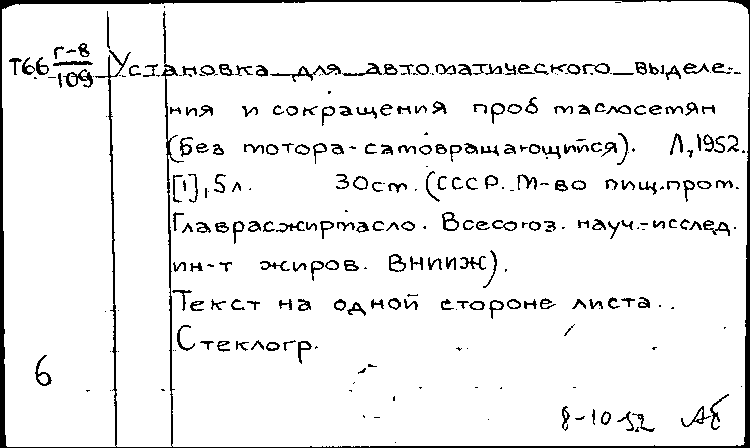 Т66 Г-8/109 Установка для автоматического выделе-
ния и сокращения проб маслосемян
(без мотора-самовращающийся). Л, 1952.
[1], 5 л. 30 см. (СССР. М-во пищ. пром.
Главрасжирмасло. Всесоюз. науч.-исслед.
ин-т жиров. ВНИИЖ).
Текст на одной стороне листа..
Стеклогр.
6
8-10-52 АБ